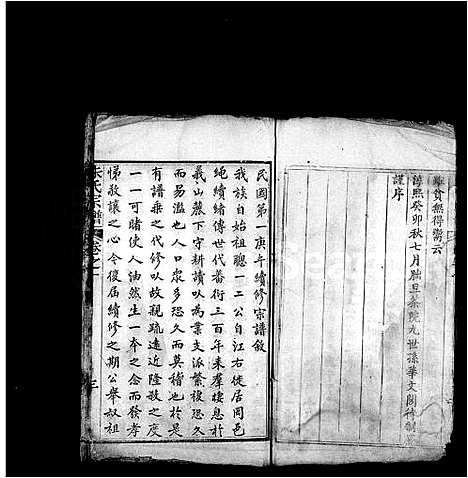 雖貧無得鬻云
淳熙癸卯秋七月朏旦奈號九世孫華文閣待制
謹序
民國第一庚午續修宗譜敘
我族自始祖聰一二公自江右徙居同邑
繩繩緒傳世代蕃衍三百年來羣棲息於
義山麓下守耕讀以為業支派繁複恐久
而易濫也人口眾多恐久而莫稽也於是
有譜乘之代修以故親疏遠近陸敍之度
一一可賭使人油然生一本之念而發孝
悌敬讓之心今復屆續修之期公舉叔祖
氏宗譜